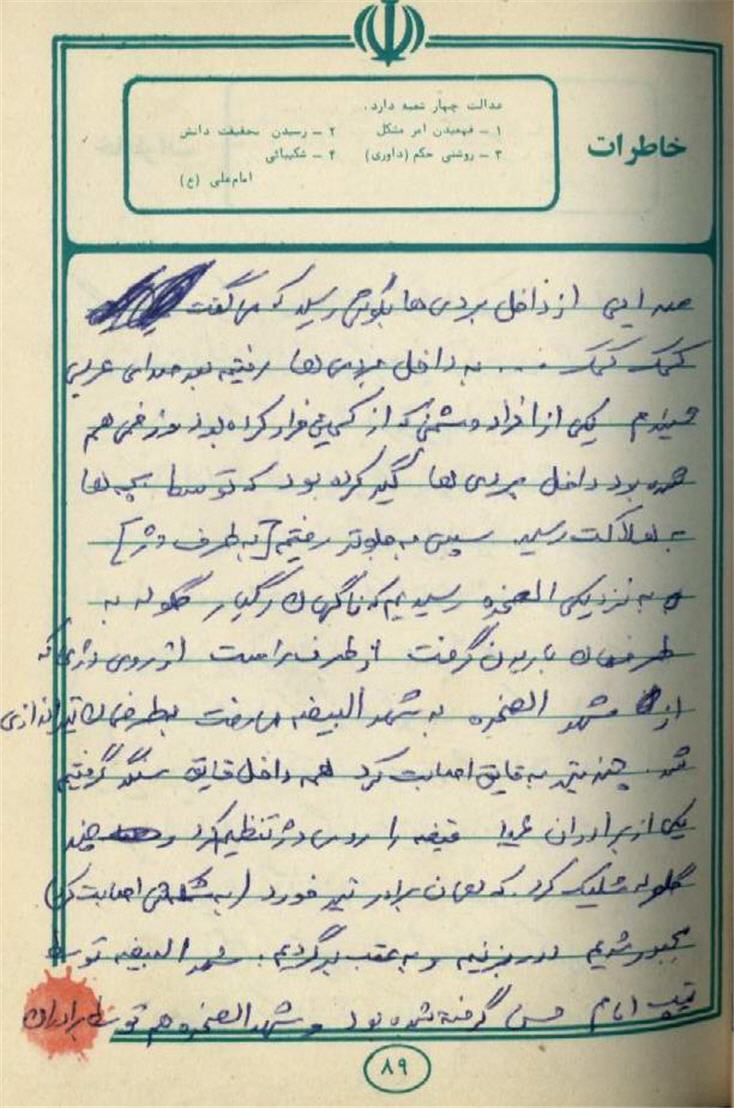 خاطرات
عدالت چهار شعبه دارد.
۱ – فهمیدن امر مشکل ۲ – رسیدن بحقیقت دانش
۳ – روشنی حکم (داوری) ۴ – شکیبائی
امام‌علی (ع)
صدایی از داخل بردی ها بگوش رسید که می‌گفت
کمک کمک ... به داخل بردی ها رفتیم بعد صدای عربی
شنیدم یکی از افراد دشمن که از کمین فرار کرده بود و زخمی هم
شده بود داخل بردی ها گیر کرده بود که توسط بچه ها
به هلاکت رسید. سپس به جلوتر رفتیم [به طرف دژ]
به نزدیکی الصخره رسیدیم که ناگهان رگبار گلوله به
طرفمان باریدن گرفت از طرف راست از روی دژی که
از شهر الصخره به شهر البیضه می‌رفت بطرفمان تیراندازی
شد. چند تیر به قایق اصابت کرد همه داخل قایق سنگر گرفتیم
یکی از برادران قبضه را روی دژ تنظیم کرد و چند
گلوله شلیک کرد. که همان برادر تیر خورد (به اصابت کرد)
مجبور شدیم دور بزنیم و به عقب برگردیم. شهر البیضه توسط
تیپ امام حسن گرفته شده بود و شهر الصخره هم توسط برادران
۸۹